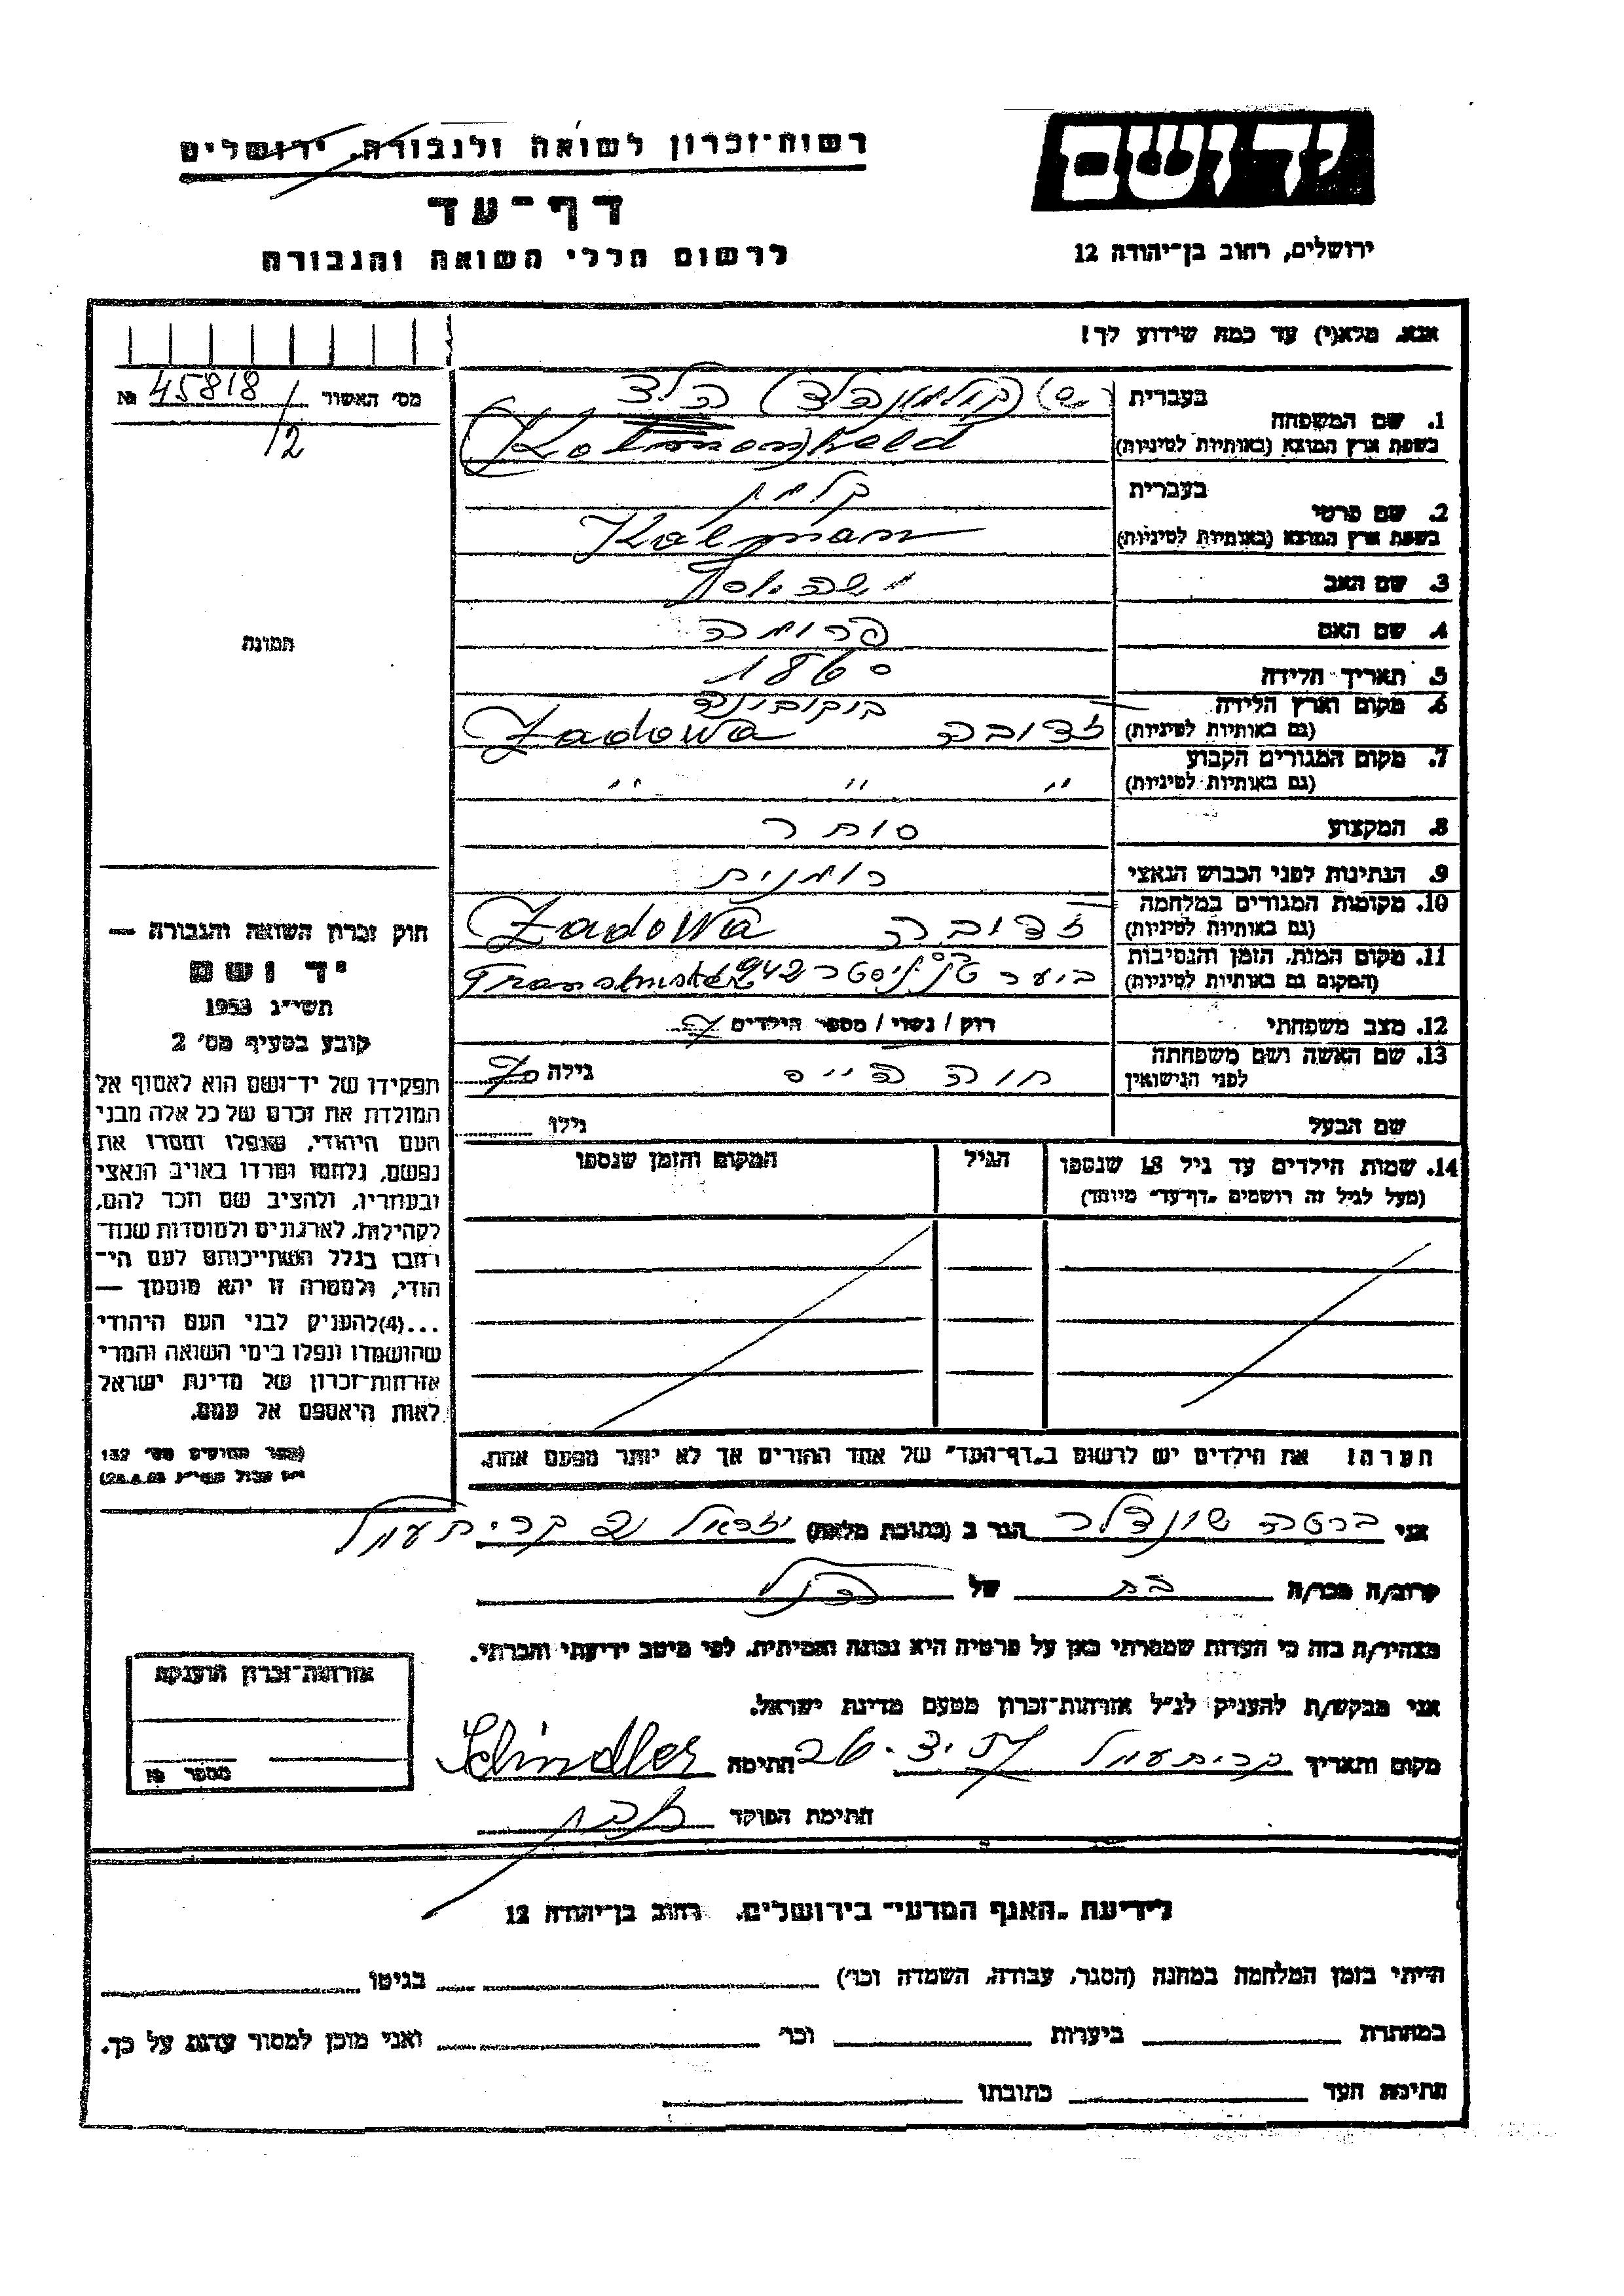 יד ושם
ירושלים, רחוב בן־יהודה 12
רשות־זכרון לשואה ולגבורה, ירושלים
דף־עד
לרשום חללי השואה והגבורה
אנא, מלא(י) עד כמה שידוע לך!
מס׳ האשור 45818/2 №
תמונה
1. שם המשפחה
בעברית (קולמן הלד) הלד
בשפת ארץ המוצא (באותיות לטיניות) (Kolmonheld
2. שם פרטי
בעברית קלמן
בשפת ארץ המוצא (באותיות לטיניות) Kalman
3. שם האב
4. שם האם פרומה
5. תאריך הלידה 1860
6. מקום וארץ הלידה בוקובינה
(גם באותיות לטיניות) זדובה Zadowa
7. מקום המגורים הקבוע
(גם באותיות לטיניות) " " "
8. המקצוע סוחר
9. הנתינות לפני הכבוש הנאצי רומנית
10. מקומות המגורים במלחמה
(גם באותיות לטיניות) זדובה Zadowa
11. מקום המות, הזמן והנסיבות
(המקום גם באותיות לטיניות) ביער טרנסניסטר 942
12. מצב משפחתי רווק / נשוי / מספר הילדים
13. שם האשה ושם משפחתה
לפני הנישואין חוה הייס גילה 70
שם הבעל גילו
14. שמות הילדים עד גיל 18 שנספו הגיל המקום והזמן שנספו
(מעל לגיל זה רושמים „דף־עד״ מיוחד)
הערה! את הילדים יש לרשום ב„דף־העד״ של אחד ההורים אך לא יותר מפעם אחת.
חוק זכרון השואה והגבורה —
יד ושם
תשי״ג 1953
קובע בסעיף מס׳ 2
תפקידו של יד־ושם הוא לאסוף אל
המולדת את זכרם של כל אלה מבני
העם היהודי, שנפלו ומסרו את
נפשם, נלחמו ומרדו באויב הנאצי
ובעוזריו, ולהציב שם וזכר להם,
לקהילות, לארגונים ולמוסדות שנח־
רבו בגלל השתייכותם לעם הי־
הודי, ולמטרה זו יהא מוסמך —
...(4)להעניק לבני העם היהודי
שהושמדו ונפלו בימי השואה והמרי
אזרחות־זכרון של מדינת ישראל
לאות היאספם אל עמם.
(ספר החוקים מס׳ 132
אני ברטה שינדלר הגר ב (כתובת מלאה) יזרעאל קרית עמל
קרוב/ה מכר/ה בת של הנ״ל
מצהיר/ה בזה כי העדות שמסרתי כאן על פרטיה היא נכונה ואמיתית, לפי מיטב ידיעתי והכרתי.
אני מבקש/ת להעניק לנ״ל אזרחות־זכרון מטעם מדינת ישראל.
מקום ותאריך קרית עמל חתימה Schindler
חתימת הפוקד
אזרחות־זכרון הוענקה
מספר №
לידיעת „האגף המדעי״ בירושלים, רחוב בן־יהודה 12
הייתי בזמן המלחמה במחנה (הסגר, עבודה, השמדה וכו׳) בגיטו
במחתרת ביערות וכו׳ ואני מוכן למסור עדות על כך.
חתימת העד כתובתו